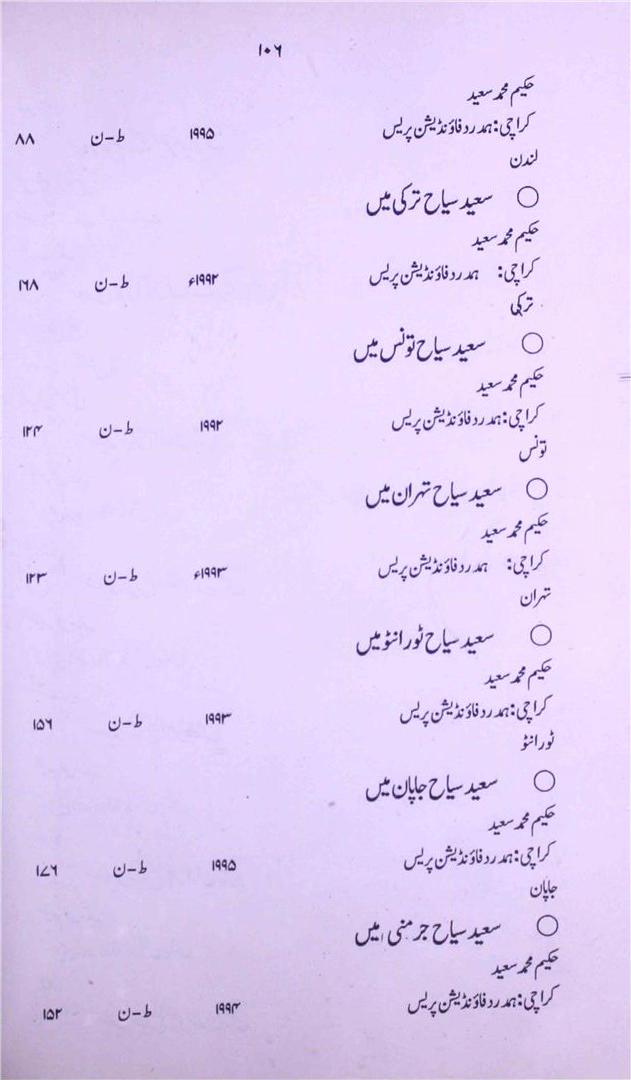 ۱۰۶
حکیم محمد سعید
کراچی: ہمدرد فاؤنڈیشن پریس ۱۹۹۵ ط-ن ۸۸
لندن
○ سعید سیاح ترکی میں
حکیم محمد سعید
کراچی: ہمدرد فاؤنڈیشن پریس ۱۹۹۲ء ط-ن ۱۶۸
ترکی
○ سعید سیاح تونس میں
حکیم محمد سعید
کراچی: ہمدرد فاؤنڈیشن پریس ۱۹۹۲ ط-ن ۱۲۴
تونس
○ سعید سیاح تہران میں
حکیم محمد سعید
کراچی: ہمدرد فاؤنڈیشن پریس ۱۹۹۳ء ط-ن ۱۲۳
تہران
○ سعید سیاح ٹورانٹو میں
حکیم محمد سعید
کراچی: ہمدرد فاؤنڈیشن پریس ۱۹۹۳ ط-ن ۱۵۶
ٹورانٹو
○ سعید سیاح جاپان میں
حکیم محمد سعید
کراچی: ہمدرد فاؤنڈیشن پریس ۱۹۹۵ ط-ن ۱۷۶
جاپان
○ سعید سیاح جرمنی میں
حکیم محمد سعید
کراچی: ہمدرد فاؤنڈیشن پریس ۱۹۹۴ ط-ن ۱۵۲